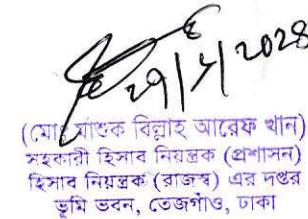 ২৭/১/২০২৪
(মোঃ মাশুক বিল্লাহ আরেফ খান)
সহকারী হিসাব নিয়ন্ত্রক (প্রশাসন)
হিসাব নিয়ন্ত্রক (রাজস্ব) এর দপ্তর
ভূমি ভবন, তেজগাঁও, ঢাকা